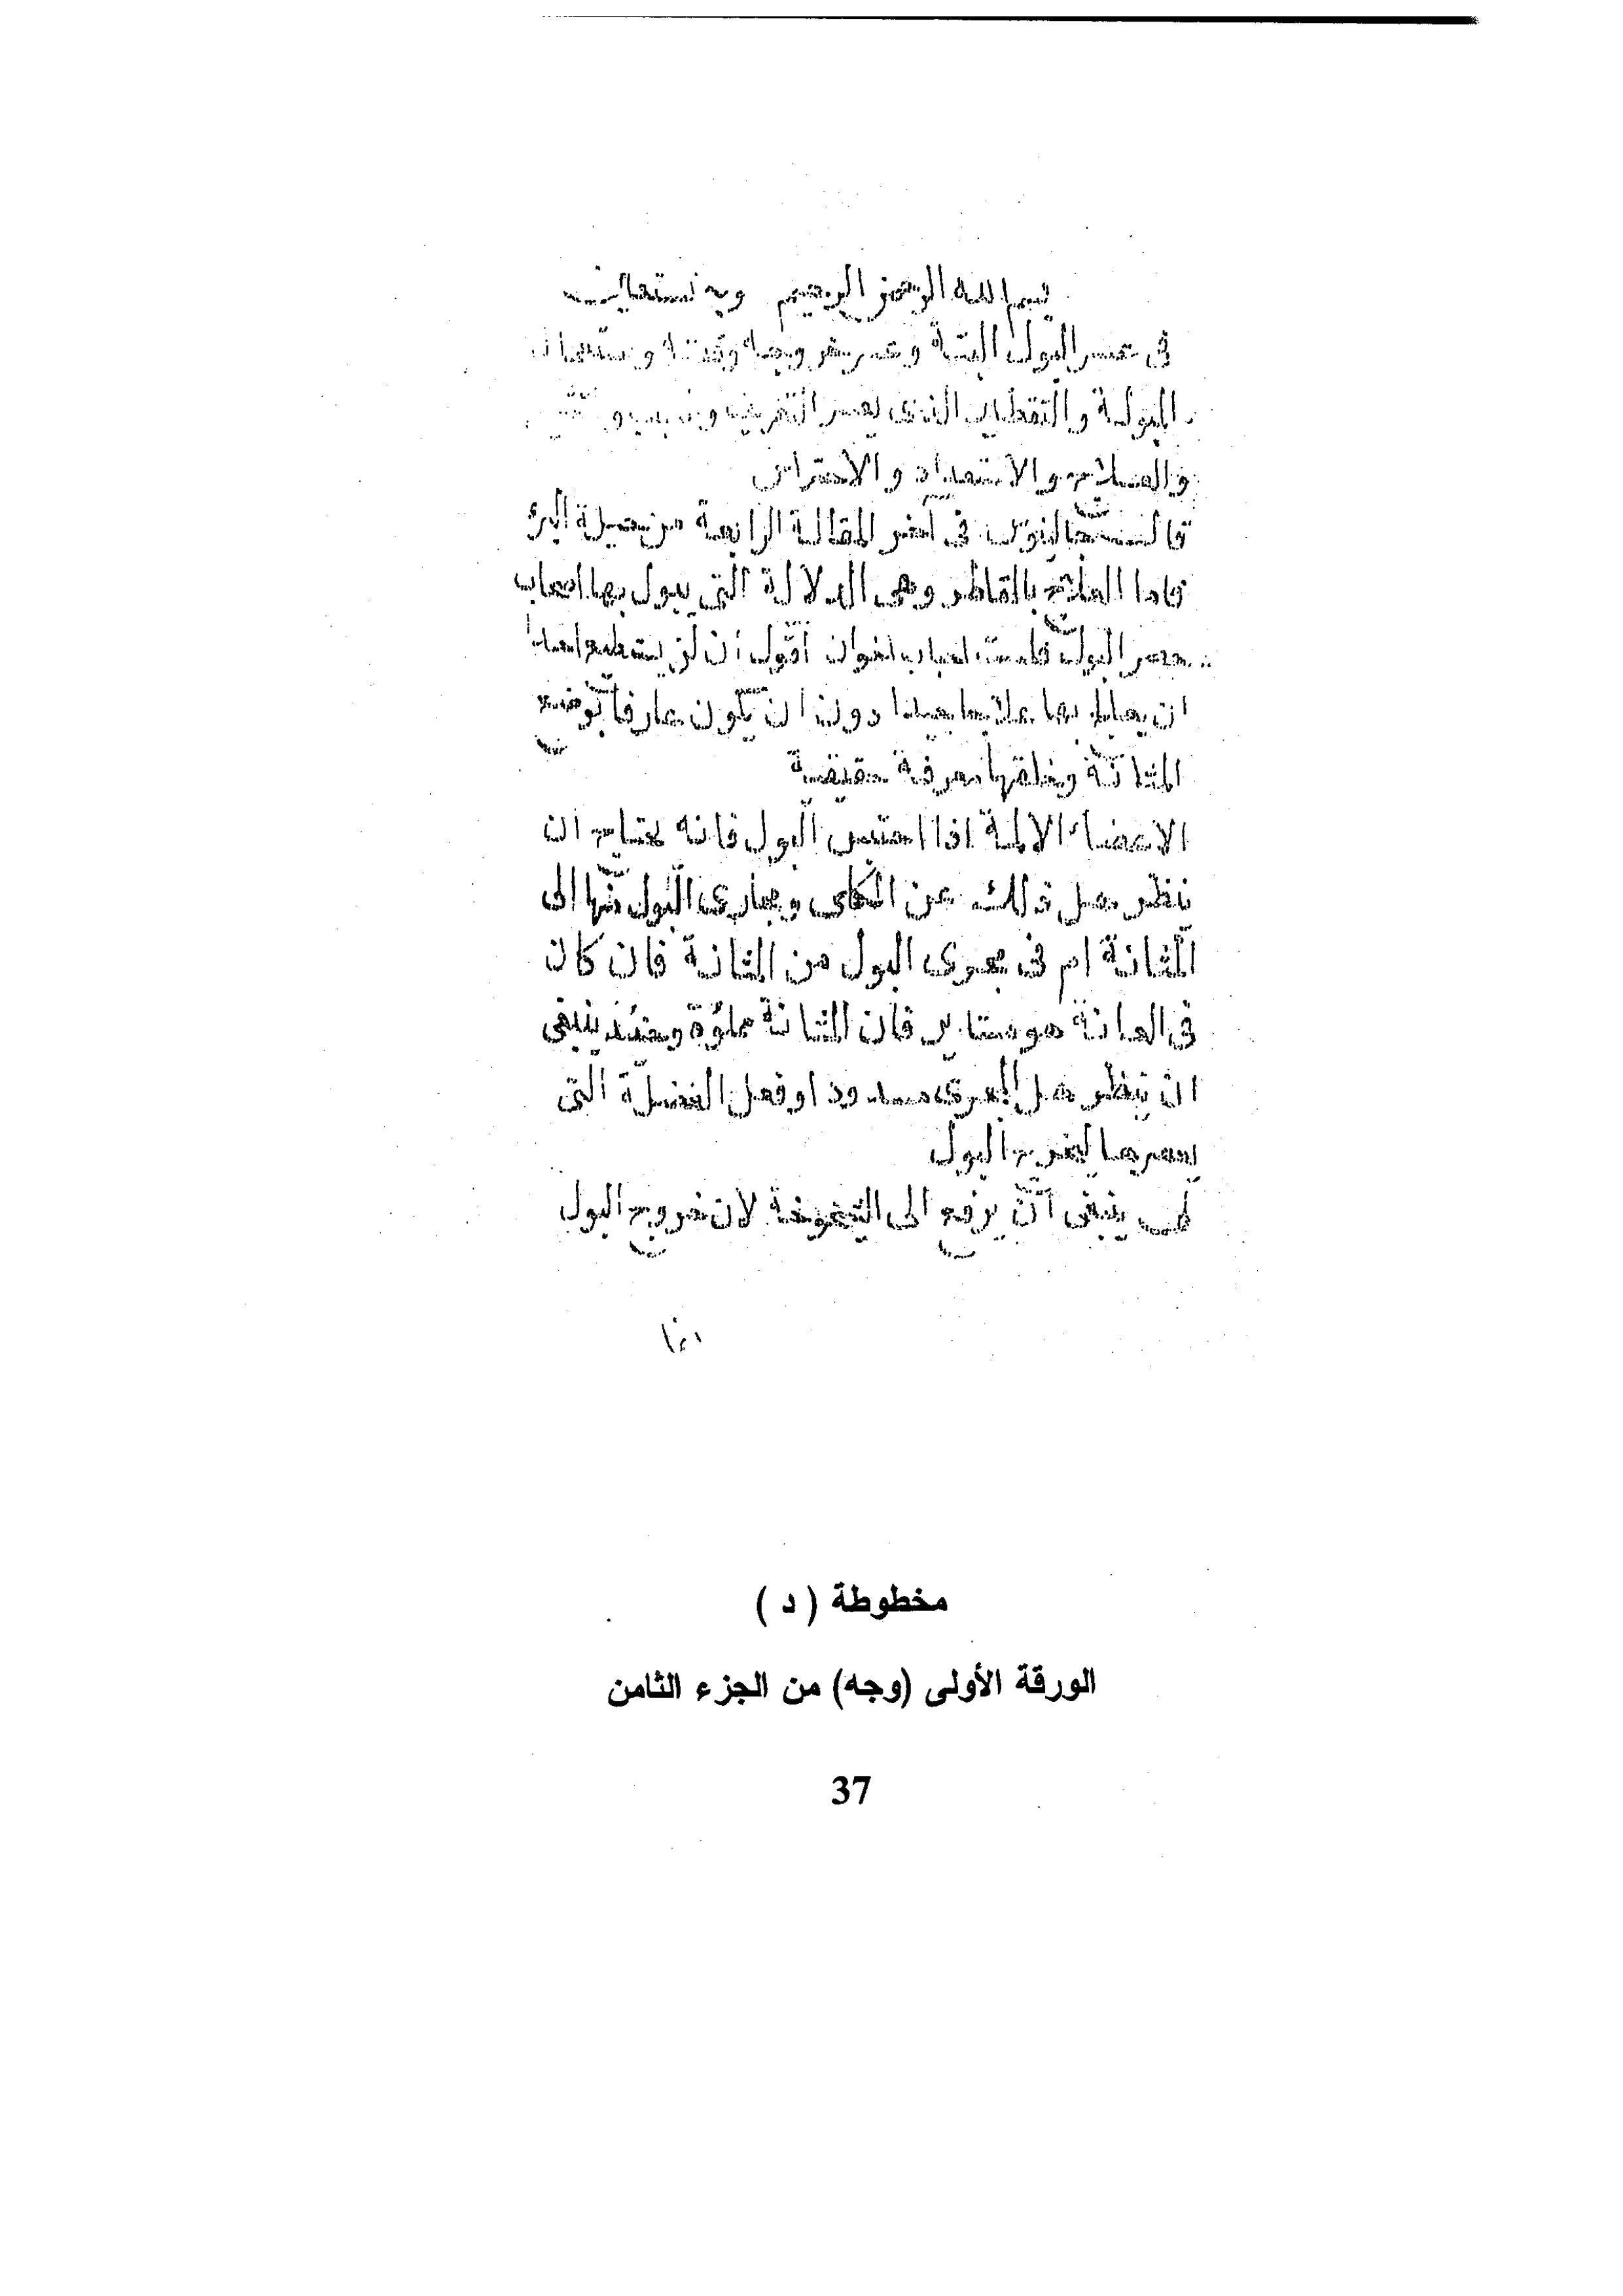 بسم الله الرحمن الرحيم وبه نستعين
فى عسر البول البتة وعسر خروجه وقلته
البولة والتقطير الذى يعسر
والعلاج والاستعداد والاحتراس
قال جالينوس فى آخر المقالة الرابعة من حيلة البرء
فاما العلاج بالقاطر وهى الدلالة التى يبول بها اصحاب
حصر البول فلست اقول ان لن يستطيع احد
ان يعالج بها علاجا جيدا دون ان يكون عارفا بوضع
المثانة وخلقها معرفة حقيقية
الاعضاء الالمة اذا احتبس البول فانه يحتاج ان
ننظر هل ذلك عن الكلى ومجارى البول منها الى
المثانة ام فى مجرى البول من المثانة فان كان
فى العانة فان المثانة مملؤة وحينئذ ينبغى
ان ننظر هل المجرى مسدود او فعل العضلة التى
بعصرها يخرج البول
لى ينبغى ان يرفع الى لان خروج البول
مخطوطة ( د )
الورقة الأولى (وجه) من الجزء الثامن
37